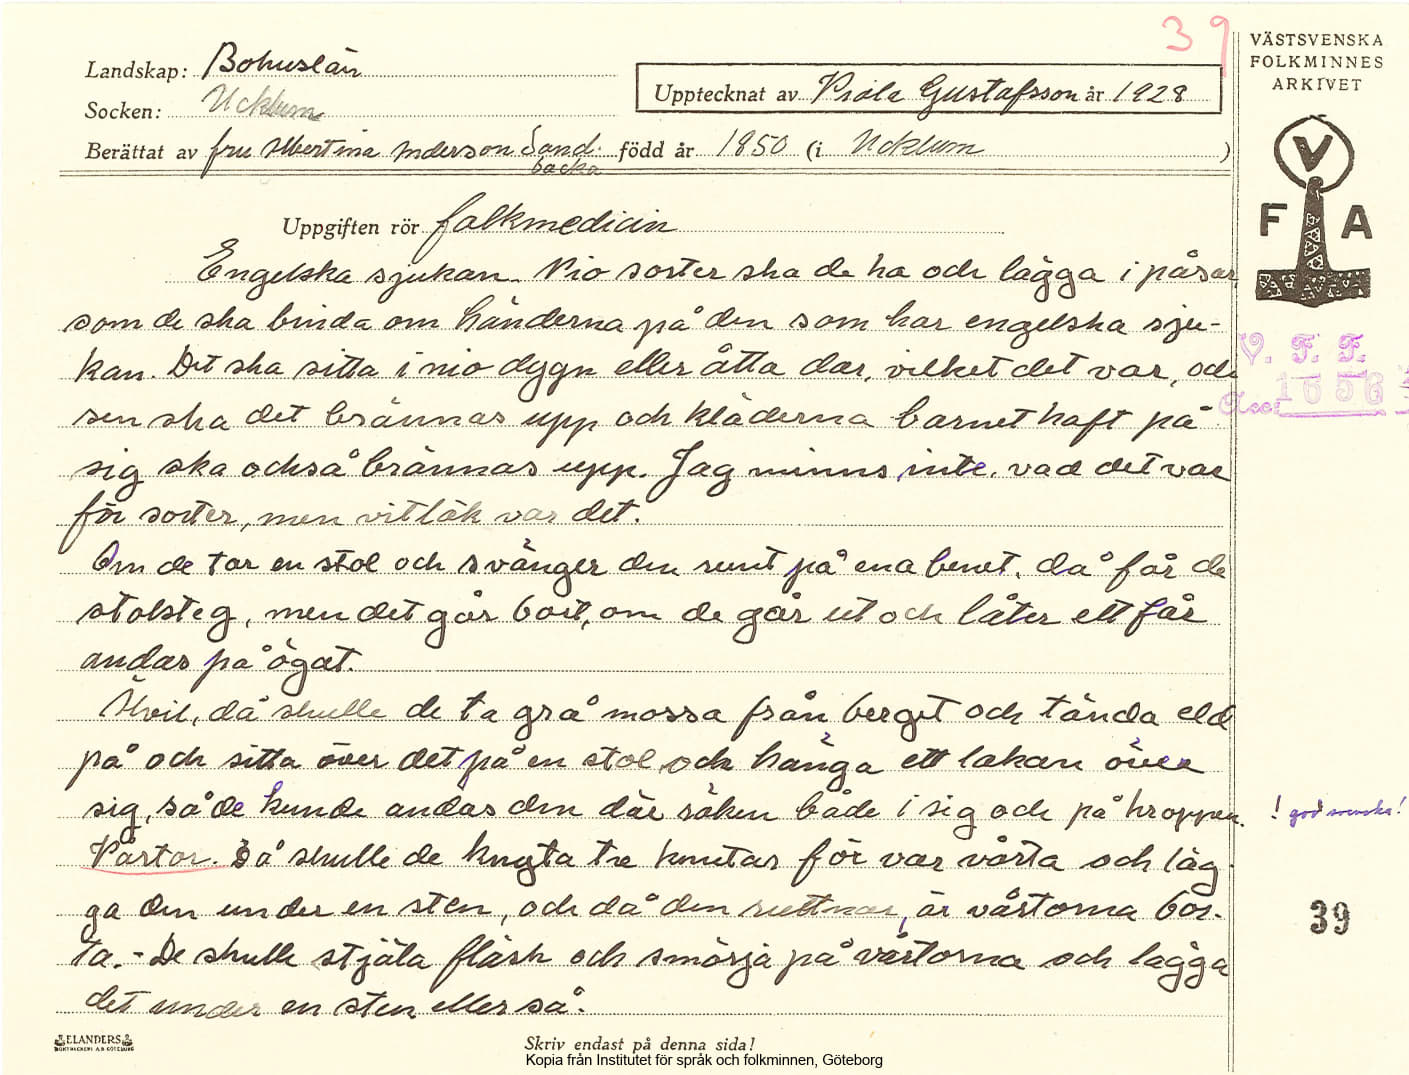 39
VÄSTSVENSKA
FOLKMINNES
ARKIVET
Landskap: Bohuslän
Socken: Ucklum
Upptecknat av Viola Gustafsson år 1928
Berättat av fru Albertina Anderson Sand-
backa född år 1850 (i Ucklum )
V
F A
Uppgiften rör folkmedicin
Engelska sjukan. Nio sorter ska de ha och lägga i påsar
som de ska binda om händerna på den som har engelska sju-
kan. Det ska sitta i nio dygn eller åtta dar, vilket det var, och
sen ska det brännas upp och kläderna barnet haft på
sig ska också brännas upp. Jag minns inte, vad det var
för sorter, men vitlök var det.
Om de tar en stol och svänger den runt på ena benet, då får de
stolsteg, men det går bort, om de går ut och låter ett får
andas på ögat.
Älvil, då skulle de ta grå mossa från berget och tända eld
på och sitta över det på en stol och hänga ett lakan över
sig, så de kunde andas den där röken både i sig och på kroppen.
! god svenska!
Vårtor. Då skulle de knyta tre knutar för var vårta och läg-
ga den under en sten, och då den ruttnar, är vårtorna bor-
ta. - De skulle stjäla fläsk och smörja på vårtorna och lägga
det under en sten eller så.
V. F. F.
Acc: 1656
39
ELANDERS
BOKTRYCKERI A.B. GÖTEBORG
Skriv endast på denna sida!
Kopia från Institutet för språk och folkminnen, Göteborg